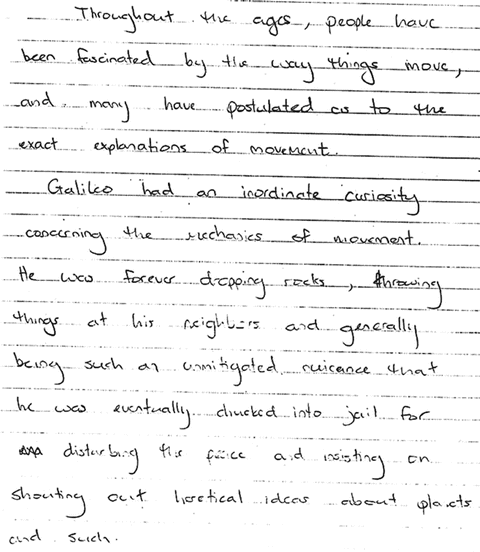 Throughout the ages, people have
been fascinated by the way things move,
and many have postulated as to the
exact explanations of movement.
Galileo had an inordinate curiosity
concerning the mechanics of movement.
He was forever dropping rocks, throwing
things at his neighbors and generally
being such an unmitigated nuisance that
he was eventually chucked into jail for
disturbing the peace and insisting on
shouting out heretical ideas about planets
and such.